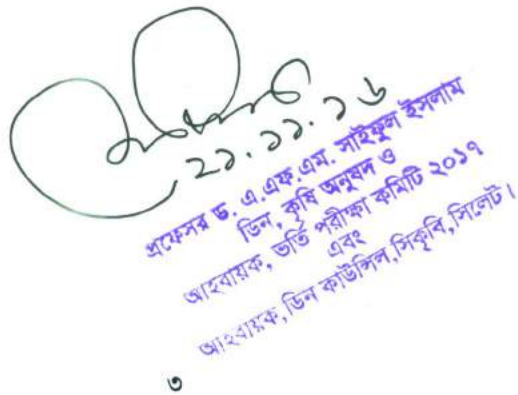 ২১.১১.১৬
প্রফেসর ড. এ.এফ.এম. সাইফুল ইসলাম
ডিন, কৃষি অনুষদ ও
আহবায়ক, ভর্তি পরীক্ষা কমিটি ২০১৭
এবং
আহবায়ক, ডিন কাউন্সিল,সিকৃবি,সিলেট।
৩